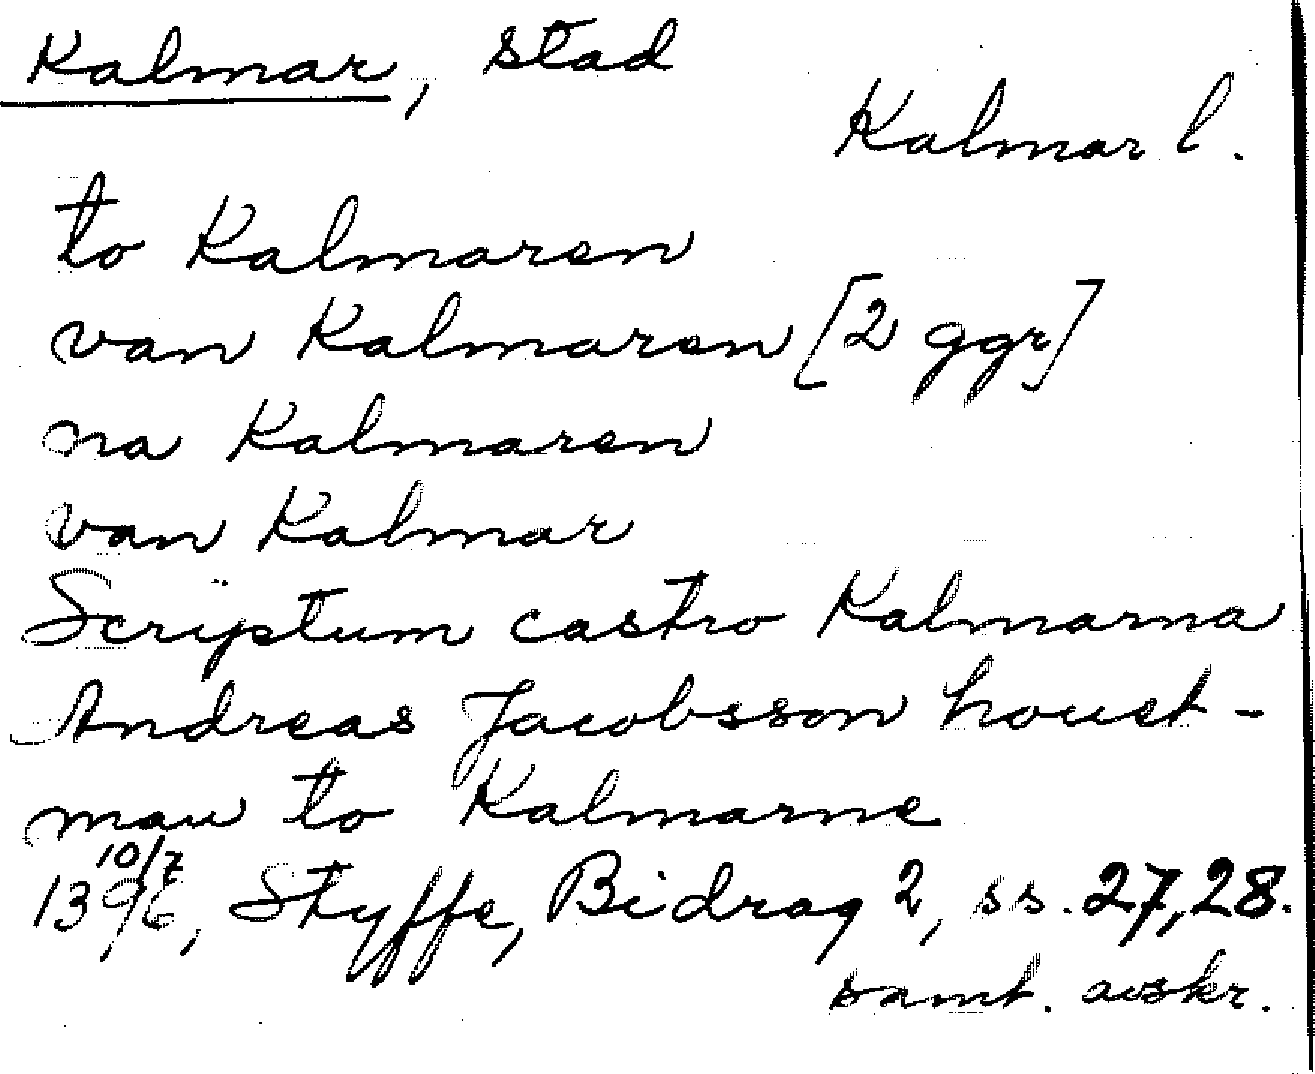 Kalmar, stad
Kalmar l.
to Kalmaren
van Kalmaren [2 ggr]
na Kalmaren
van Kalmar
Scriptum castro Kalmarna
Andreas Jacobsson houet-
man to Kalmarne
10/7
1396, Styffe, Bidrag 2, ss. 27,28.
samt. avskr.